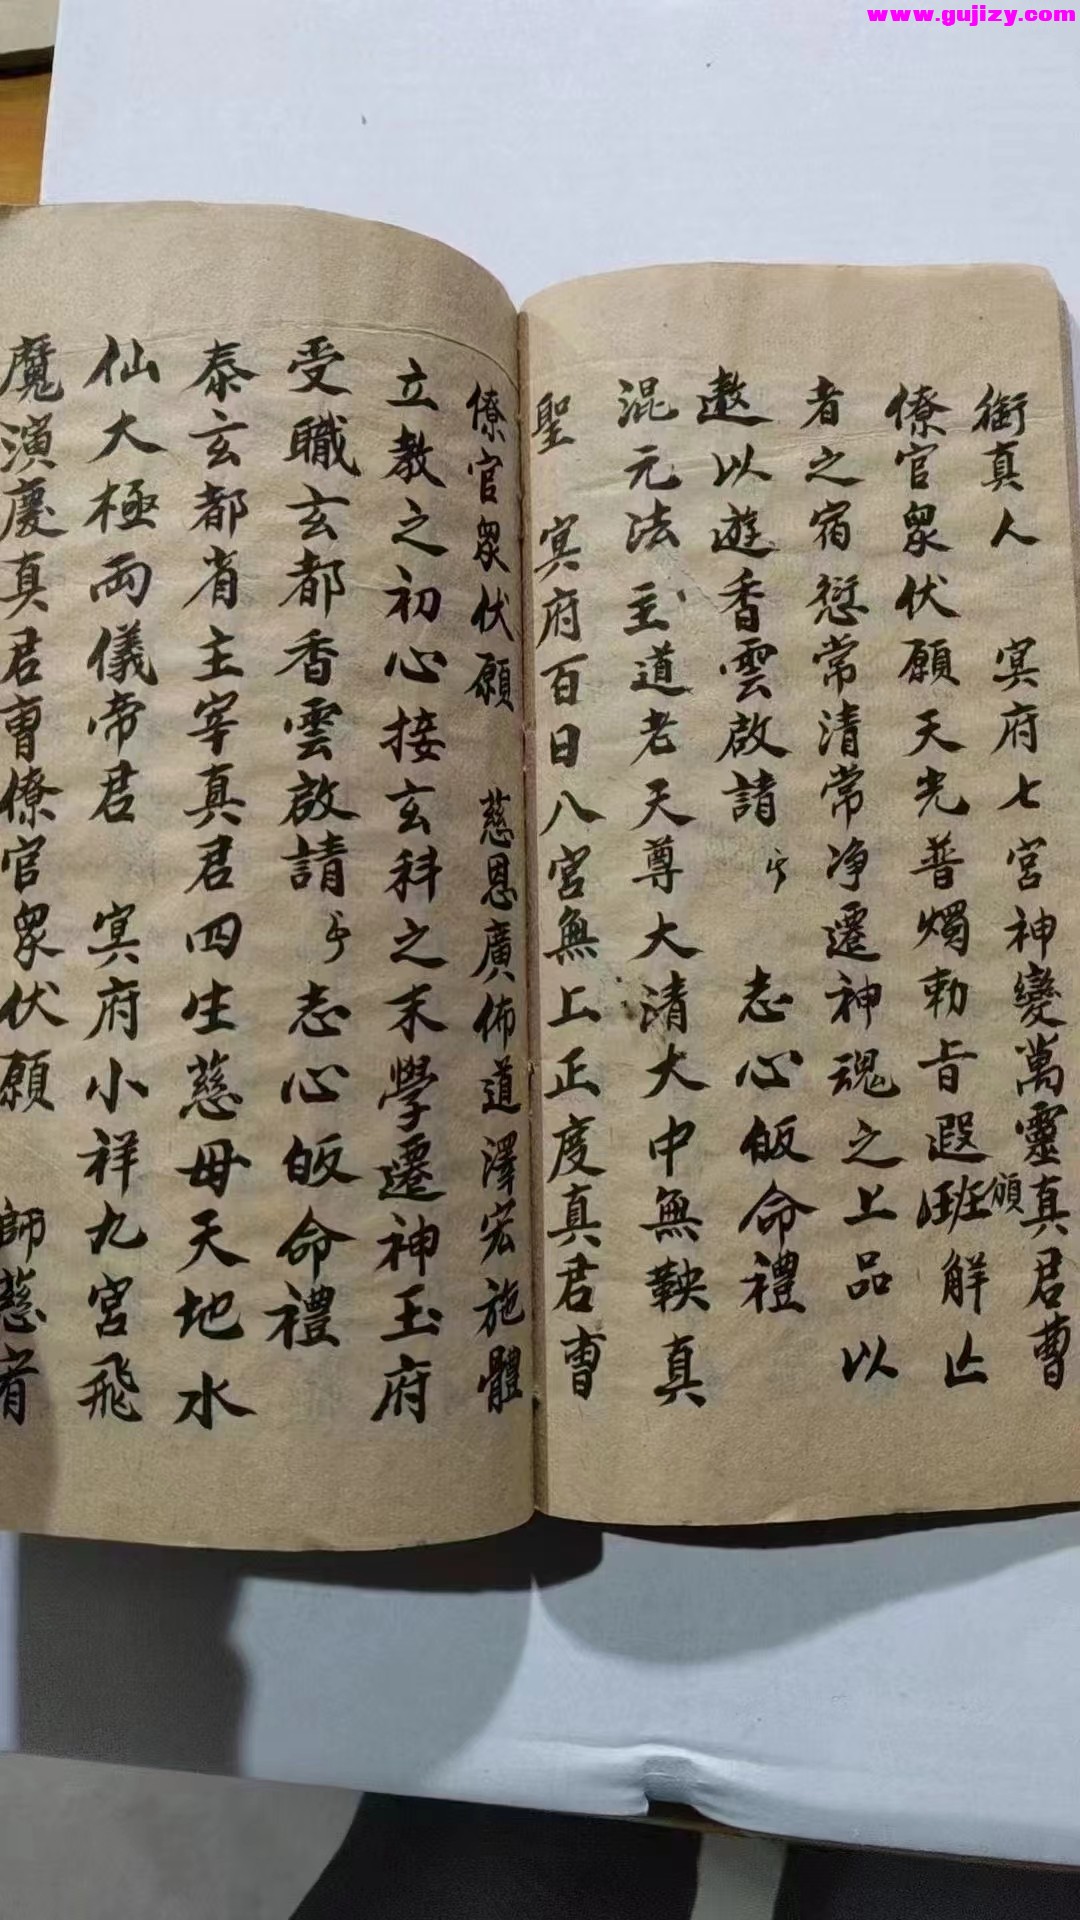 www.gujizy.com
衛真人 冥府七宮神變萬靈真君曹
僚官衆伏願天光普燭勅旨遐頒班解亾
者之宿愆常清常净遷神魂之上品以
遨以遊香雲啟請 志心皈命禮
混元法主道老天尊大清大中無鞅真
聖 冥府百日八宮無上正度真君曺
僚官衆伏願 慈恩廣佈道澤宏施體
立教之初心接玄科之末學遷神玉府
受職玄都香雲啟請 志心皈命禮
泰玄都省主宰真君四生慈母天地水
仙大極両儀帝君 冥府小祥九宮飛
魔演慶真君曺僚官衆伏願 師慈宥